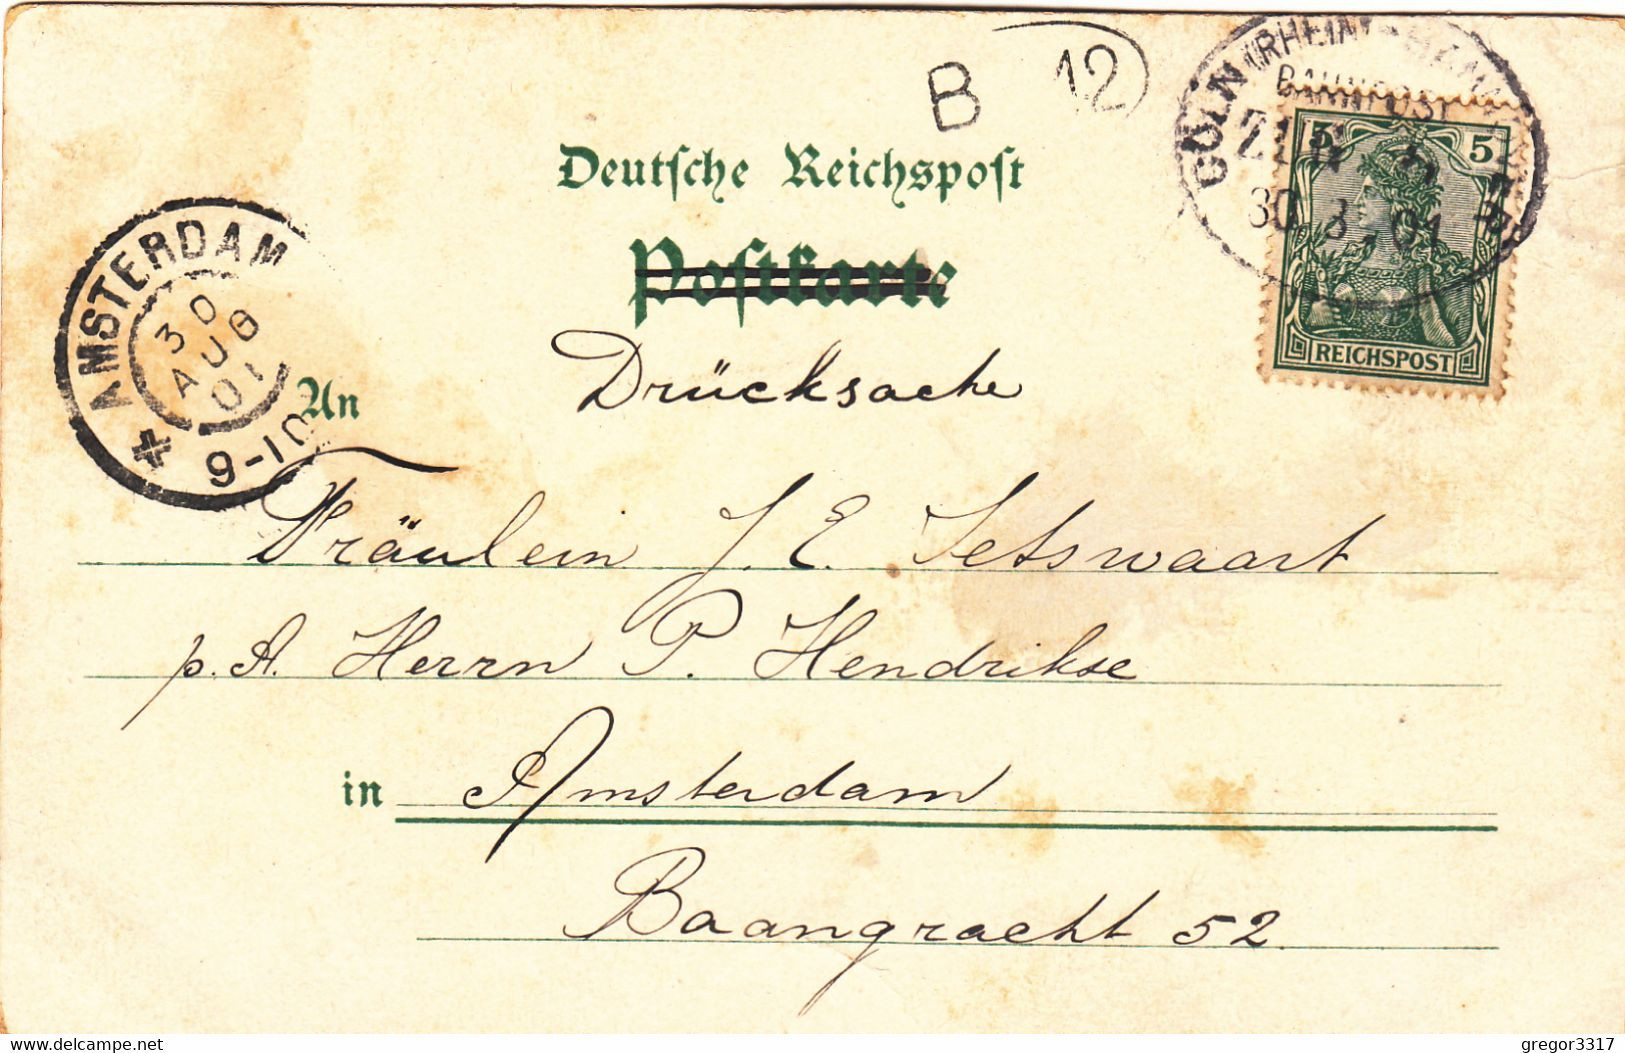 B 12
CÖLN (RHEIN) - HANNOVER
BAHNPOST
ZUG
30 8 01
5 5
REICHSPOST
Deutsche Reichspost
Postkarte
Drücksache
AMSTERDAM
30
AUG
01
9-10
An
Fräulein J. E. Jetswaart
p. A. Herrn P. Hendrikse
in Amsterdam
Baangracht 52
www.delcampe.net
gregor3317